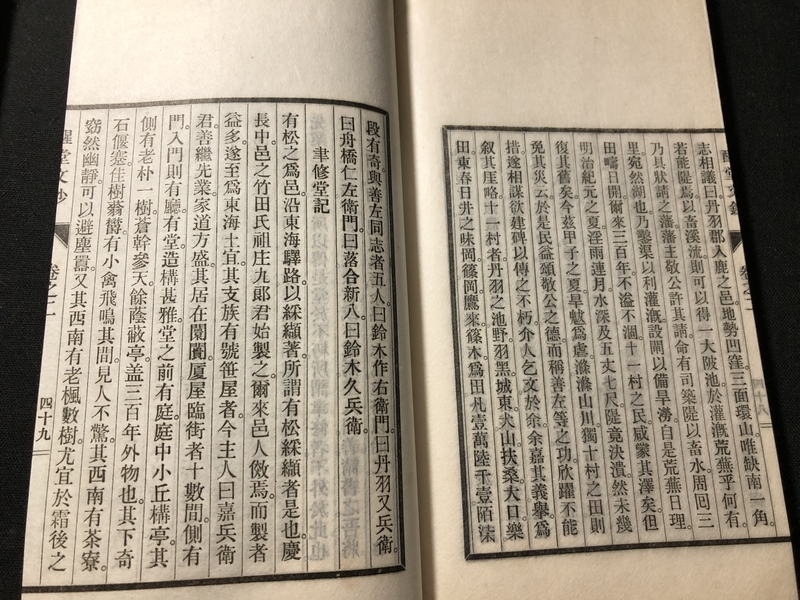 醒堂文鈔 卷之二 四十八
志相議曰丹羽郡入鹿之邑地勢凹窪三面環山唯缺南一角。
若能隄焉以畜溪流則可以得一大陂池於灌漑荒蕪乎何有。
乃具狀請之藩藩主敬公許其請命有司築隄以畜水周囘三
里宛然湖也乃鑿渠以利灌漑設閘以備旱澇自是荒蕪日理。
田疇日開爾來三百年不溢不涸十一村之民咸蒙其澤矣但
明治紀元之夏淫雨連月水深及五丈七尺隄竟決潰然未幾
復其舊矣今茲甲子之夏旱魃爲虐滌滌山川獨十村之田則
免其災云於是民益頌敬公之德而稱善左等之功欣躍不能
措遂相謀欲建碑以傳之不朽介人乞文於余余嘉其義擧爲
叙其厓略十一村者丹羽之池野羽黑城東犬山扶桑大口樂
田東春日井之味岡篠岡鷹來篠木爲田凡壹萬陸千壹陌柒
段有奇與善左同志者五人曰鈴木作右衛門曰丹羽又兵衛。
曰舟橋仁左衛門曰落合新八曰鈴木久兵衛
聿修堂記
有松之爲邑。沿東海驛路。以綵纈著。所謂有松綵纈者是也慶
長中邑之竹田氏祖庄九郞君始製之。爾來邑人倣焉。而製者
益多。遂至爲東海土宜。其支族有號笹屋者。今主人曰嘉兵衛
君。善繼先業。家道方盛。其居在闤闠。厦屋臨街者十數間。側有
門。入門則有廳。有堂。造構甚雅。堂之前有庭。庭中小丘構亭。其
側有老朴一樹。蒼幹參天。餘蔭蔽亭。盖三百年外物也。其下奇
石偃蹇。佳樹蓊欝。有小禽飛鳴其間。見人不驚。其西南有茶寮。
窈然幽靜。可以避塵囂。又其西南有老楓數樹。尤宜於霜後之
醒堂文鈔 卷之二 四十九